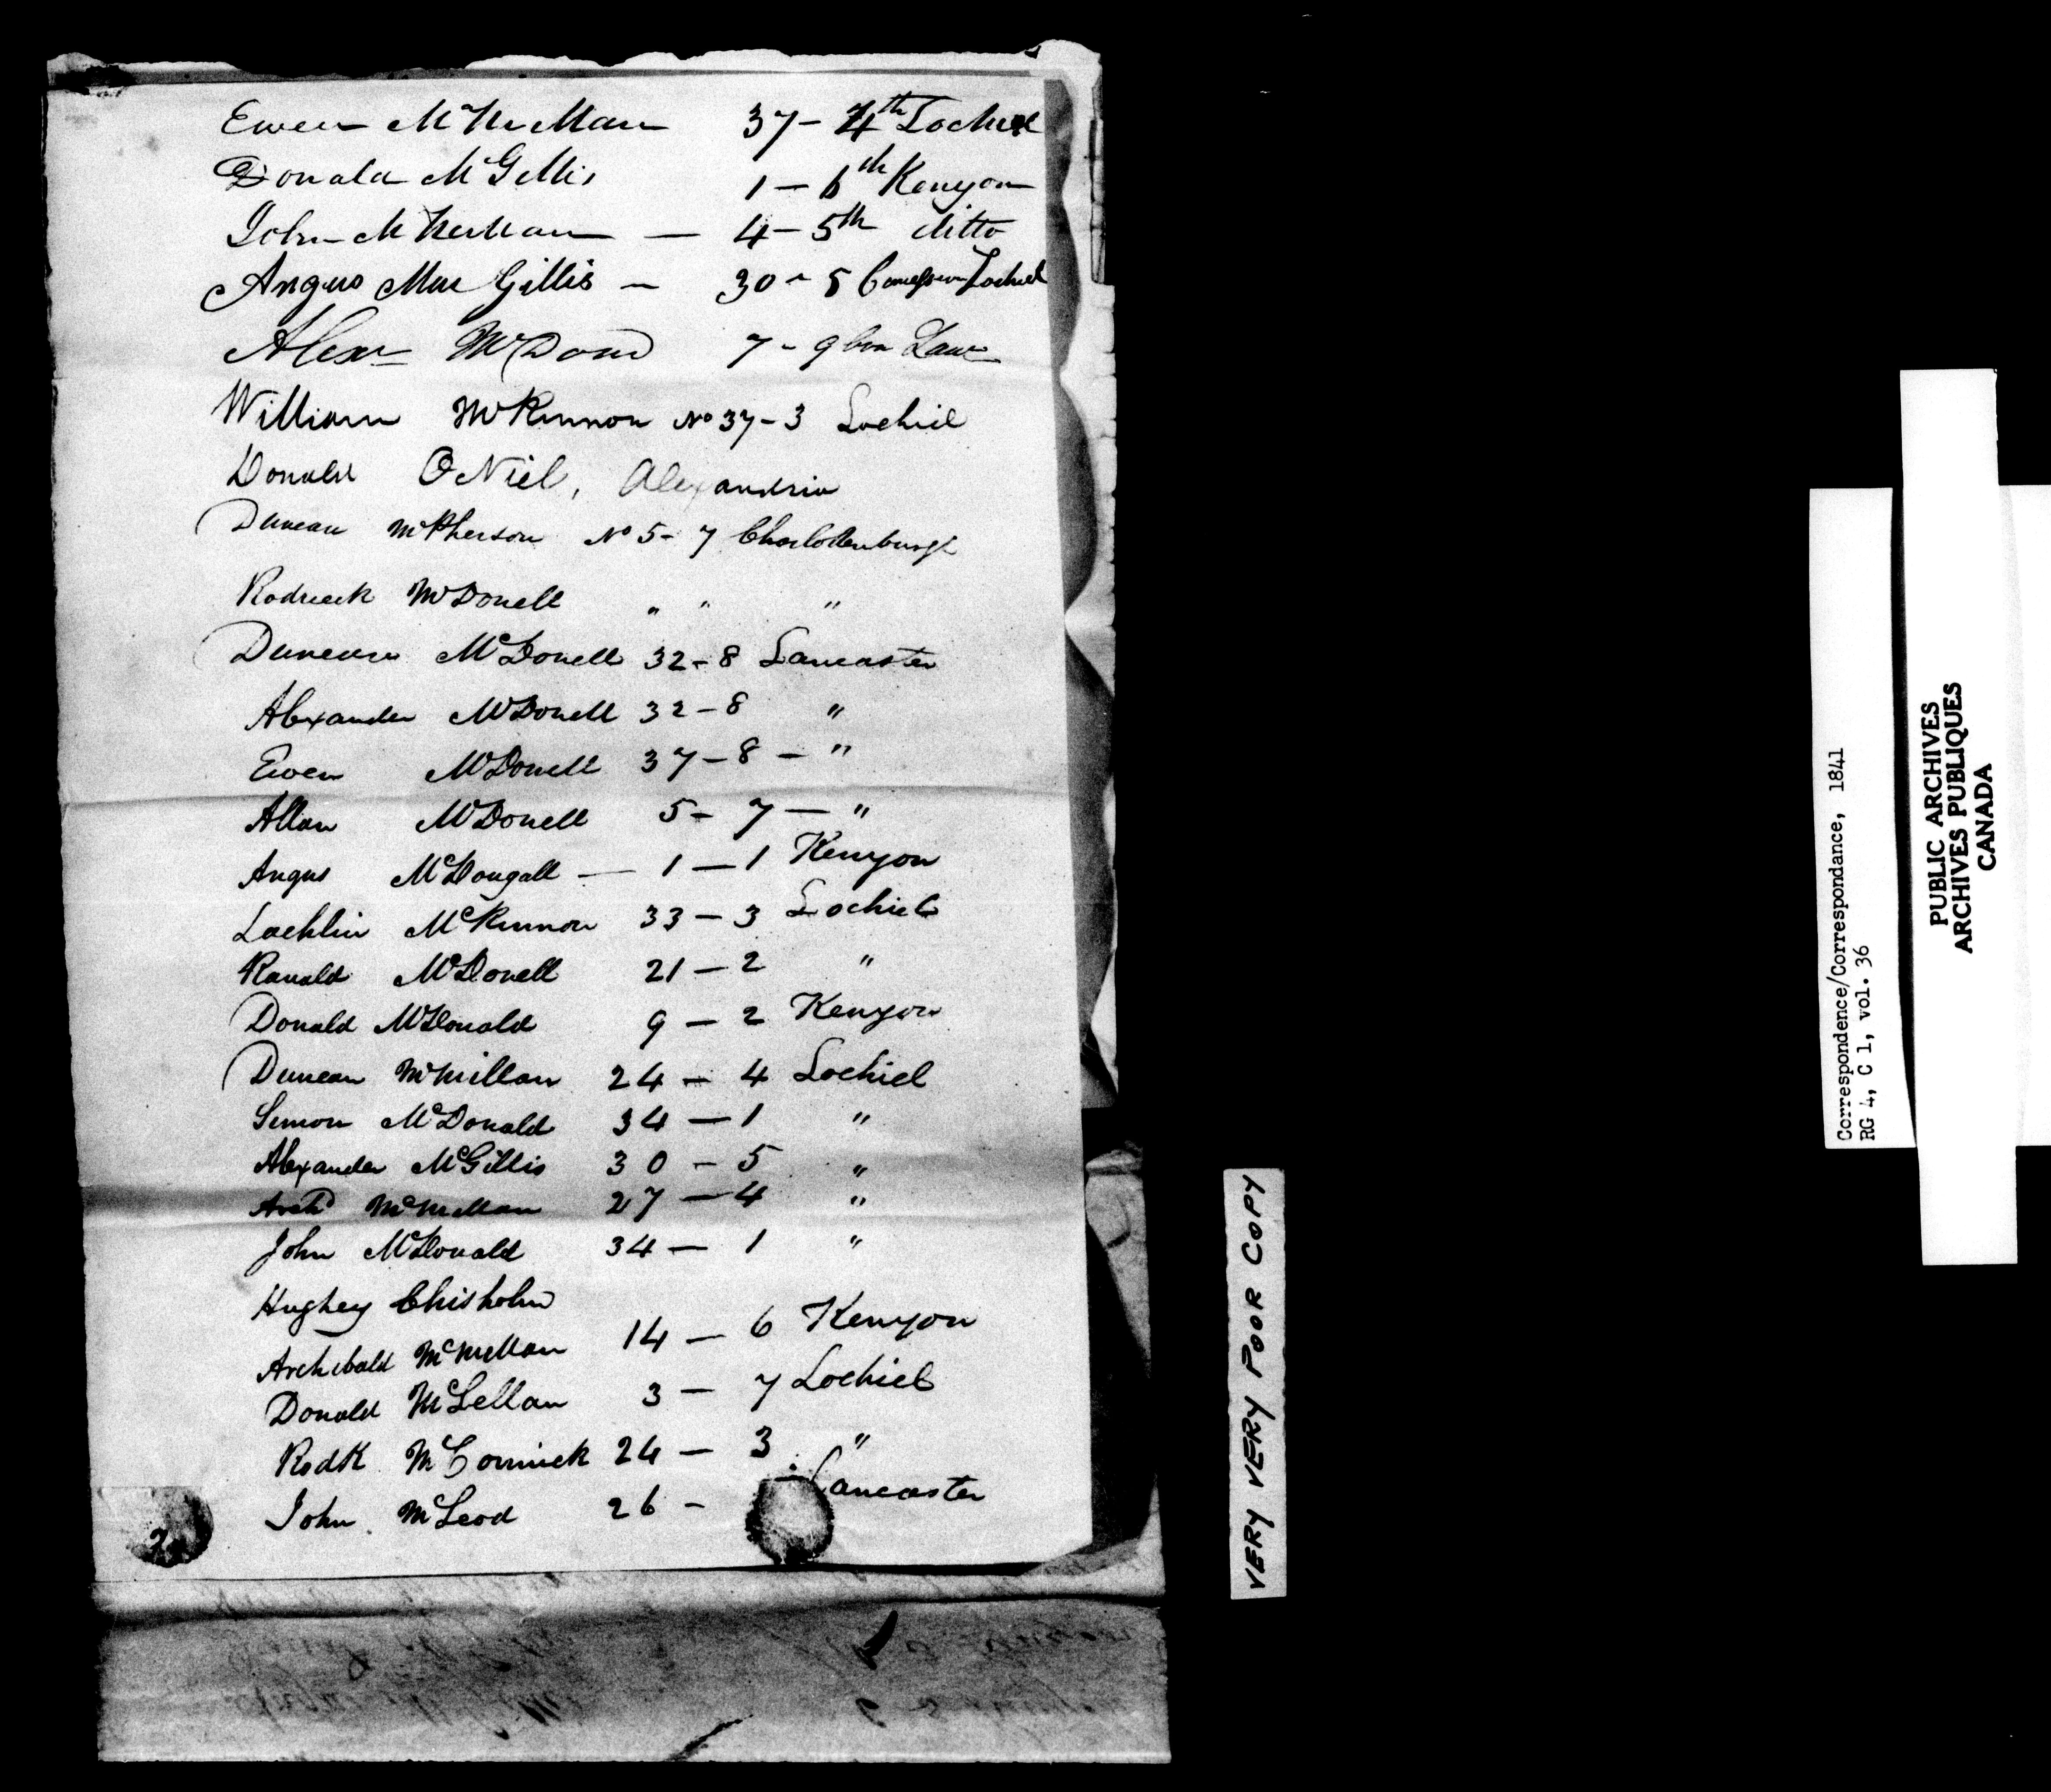 Ewen McMillan 37 - 4th Lochiel
Donald McGillis 1 - 6th Kenyon
John McMillan - 4 - 5th ditto
Angus Mac Gillis - 30 - 5 Concession Lochiel
Alexr McDond 7 - 9 Con Lanc
William McKinnon No 37 - 3 Lochiel
Donald ONiel, Alexandria
Duncan McPherson No 5 - 7 Charlottenburgh
Rodrick McDonell " " "
Duncan McDonell 32 - 8 Lancaster
Alexander McDonell 32 - 8 "
Ewen McDonell 37 - 8 - "
Allan McDonell 5 - 7 - "
Angus McDougall - 1 - 1 Kenyon
Lachlin McKinnon 33 - 3 Lochiel
Ranald McDonell 21 - 2 "
Donald McDonald 9 - 2 Kenyon
Duncan McMillan 24 - 4 Lochiel
Simon McDonald 34 - 1 "
Alexander McGillis 30 - 5 "
Archd McMillan 27 - 4 "
John McDonald 34 - 1 "
Hughey Chisholm
Archibald McMillan 14 - 6 Kenyon
Donald McLellan 3 - 7 Lochiel
Rodk McCormick 24 - 3 "
John McLeod 26 - Lancaster
2
VERY VERY POOR COPY
Correspondence/Correspondance, 1841
RG 4, C 1, vol. 36
PUBLIC ARCHIVES
ARCHIVES PUBLIQUES
CANADA